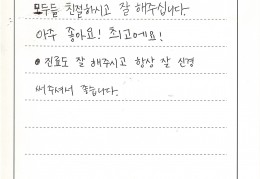 모두들 친절하시고 잘 해주십니다.
아주 좋아요! 최고에요!
• 진료도 잘 해주시고 항상 잘 신경
써주셔서 좋습니다.